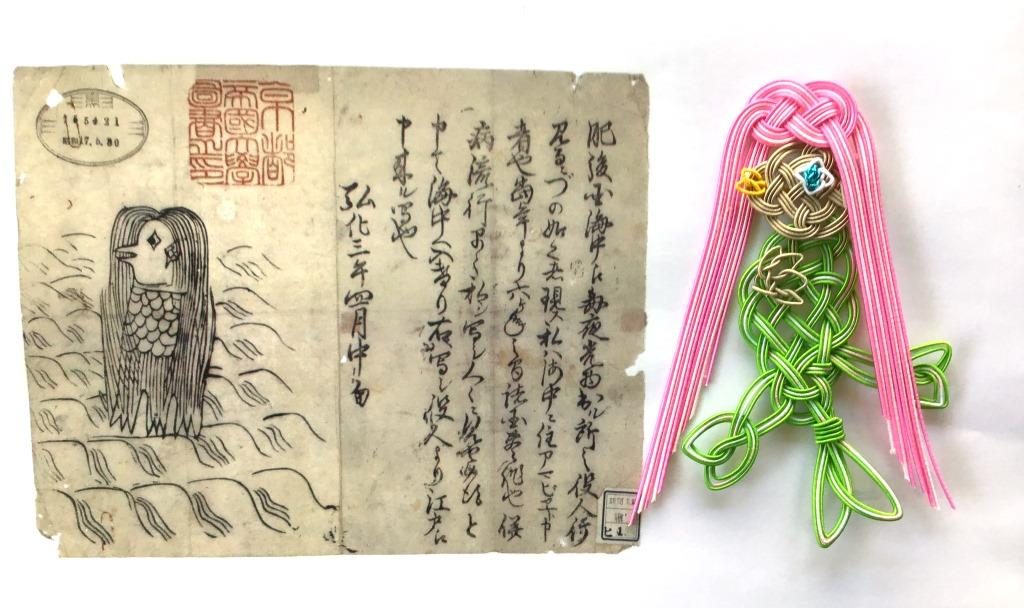 肥後国海中え毎夜光物出ル所之役人行
見るニづの如く者現ス私ハ海中ニ住アマビヱト申
者也当年より六ヶ年之間諸国豊作也併
病流行早々私シ写シ人々ニ見せ候得と
申て海中へ入けり右写シ役人より江戸え
申来ル写也
弘化三年四月中旬
京都
帝國大學
圖書之印
17.5.30